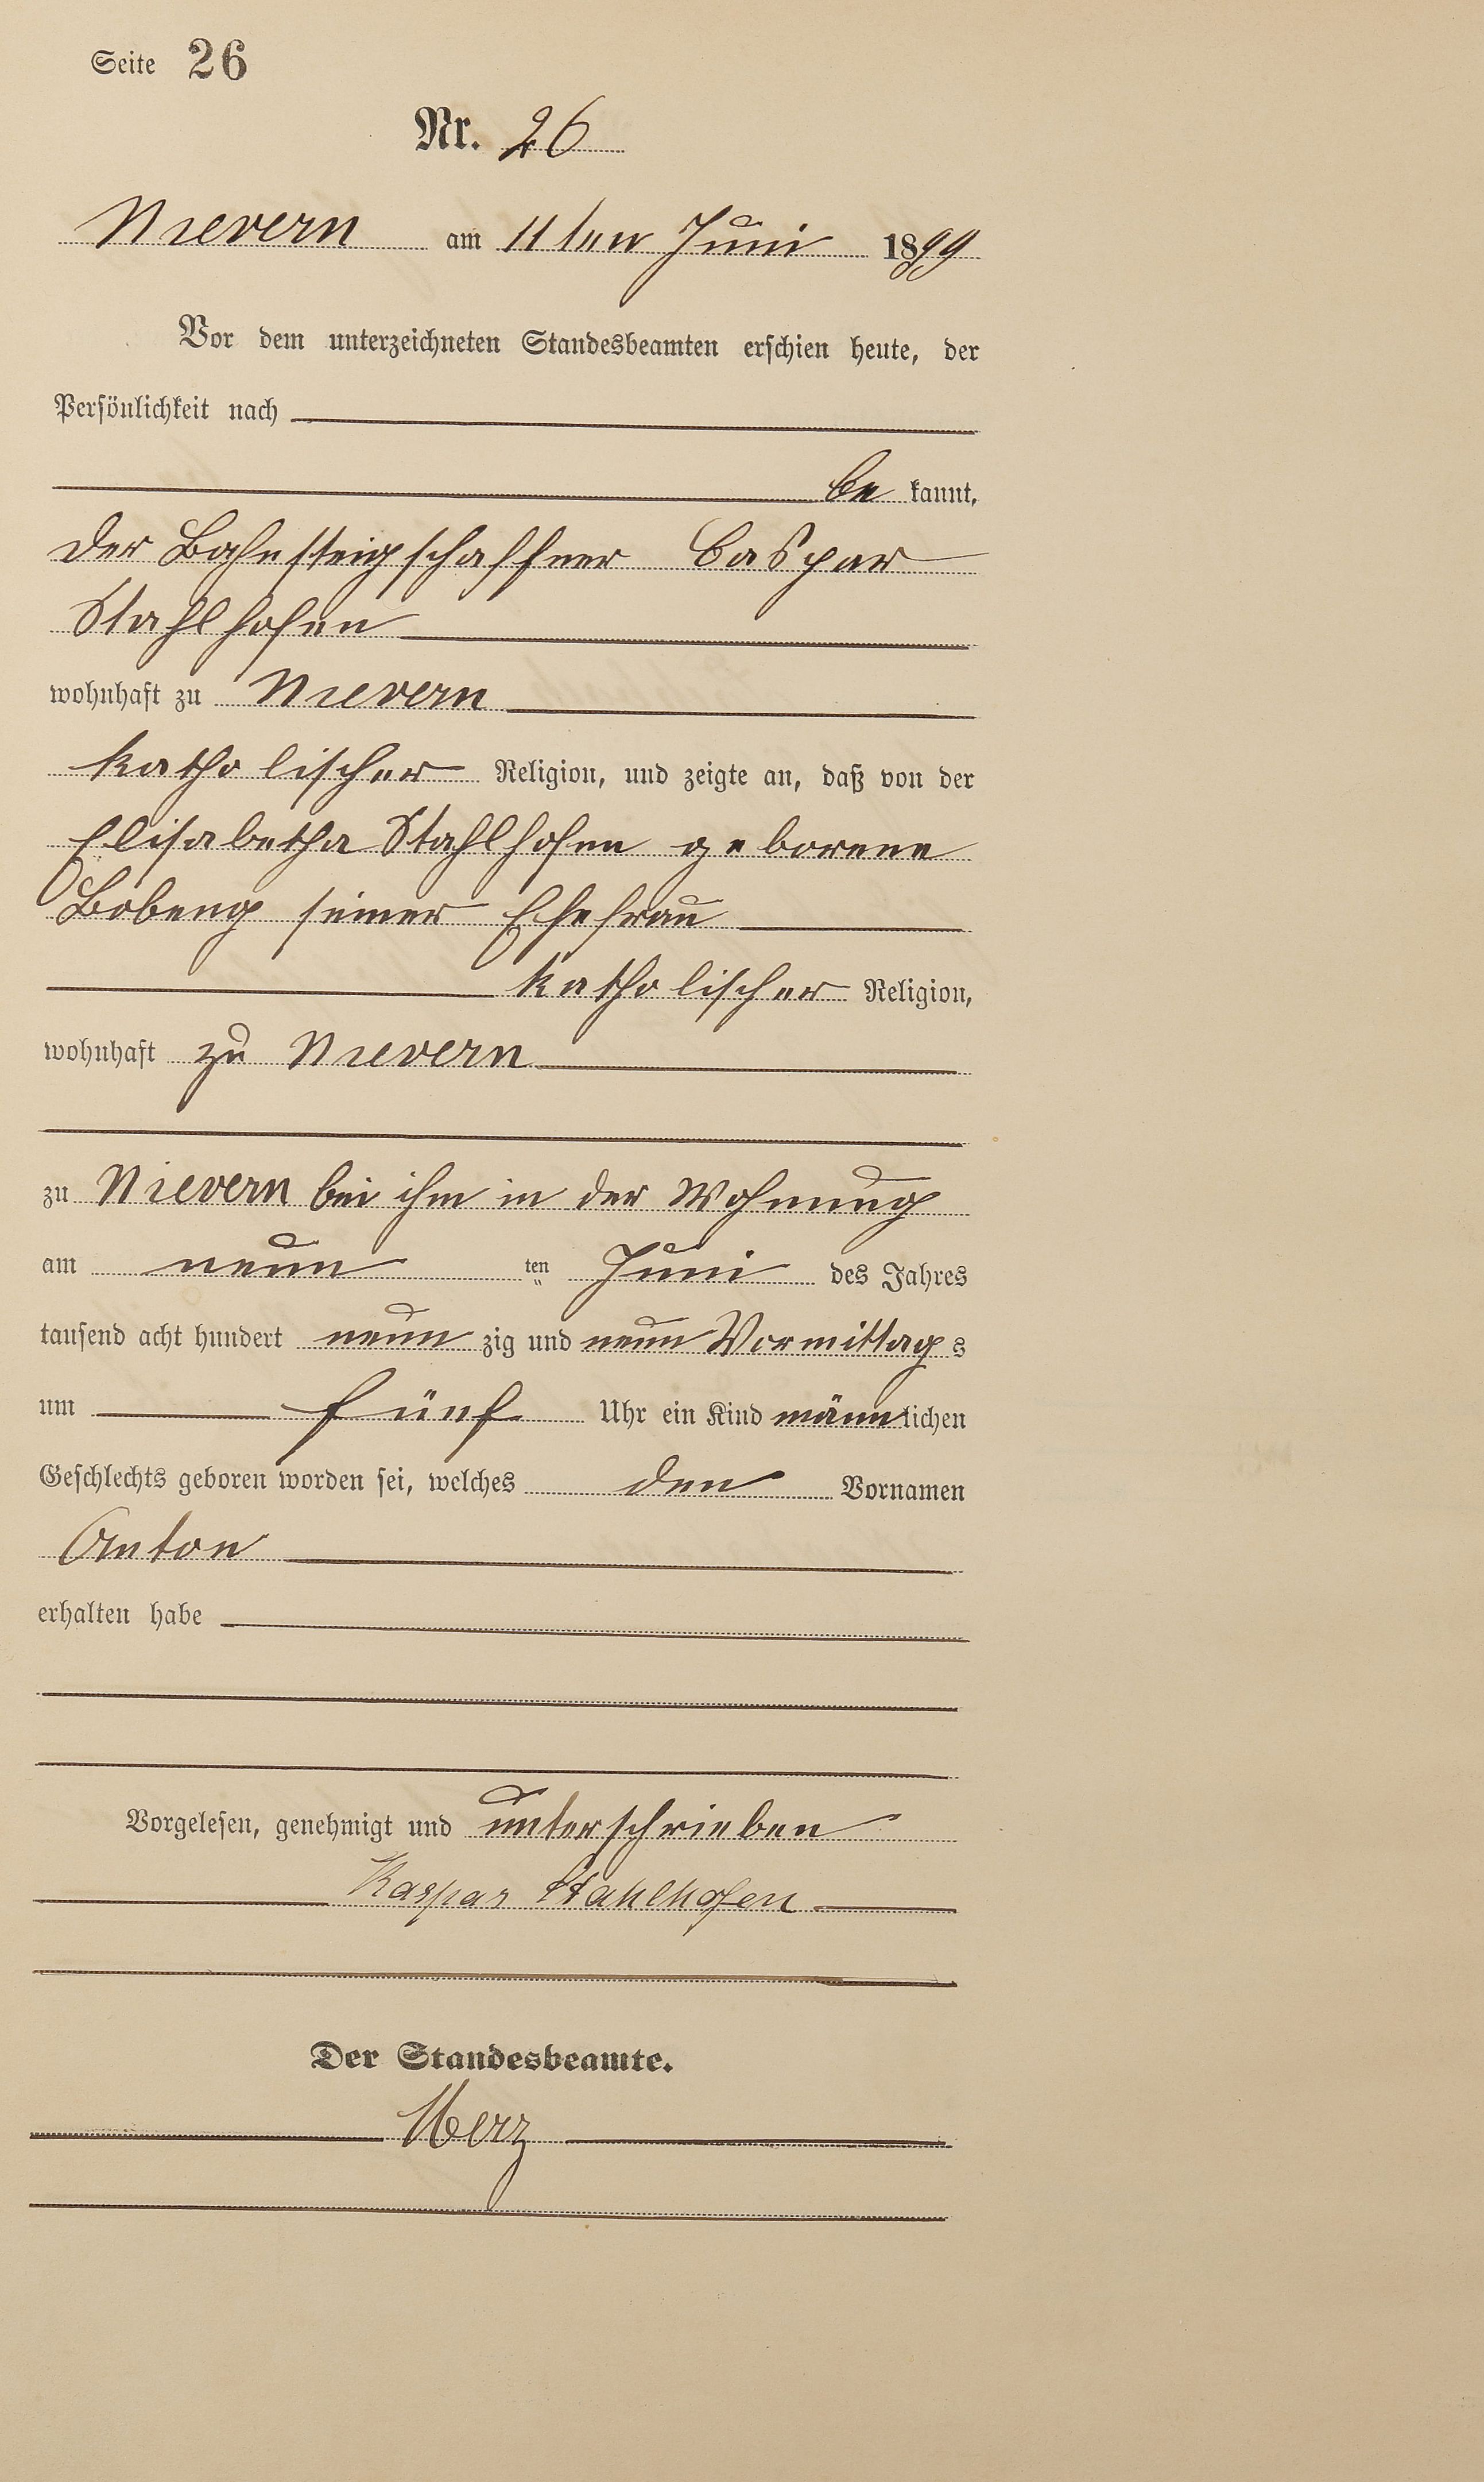 Seite 26
Nr. 26
Nievern am 11ten Juni 1899
Vor dem unterzeichneten Standesbeamten erschien heute, der
Persönlichkeit nach
be kannt,
der Bahnsteigschaffner Caspar
Stahlhofen
wohnhaft zu Nievern
katholischer Religion, und zeigte an, daß von der
Elisabetha Stahlhofen geborene
Bobeng seiner Ehefrau
katholischer Religion,
wohnhaft zu Nievern
zu Nievern bei ihm in der Wohnung
am neun ten Juni des Jahres
tausend acht hundert neun zig und neun Vormittag s
um fünf Uhr ein Kind männlichen
Geschlechts geboren worden sei, welches den Vornamen
Anton
erhalten habe
Vorgelesen, genehmigt und unterschrieben
Kaspar Stahlhofen
Der Standesbeamte.
Merz